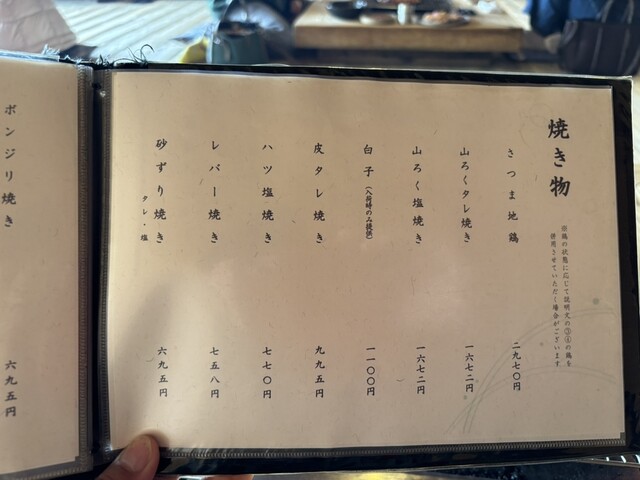 焼き物
※鶏の状態に応じて説明文の③④の鶏を
併用させていただく場合がございます
さつま地鶏
二九七〇円
山ろくタレ焼き
一六七二円
山ろく塩焼き
一六七二円
白子(入荷時のみ提供)
一一〇〇円
皮タレ焼き
九九五円
ハツ塩焼き
七七〇円
レバー焼き
七五八円
砂ずり焼き
タレ・塩
六九五円
ボンジリ焼き
六九五円